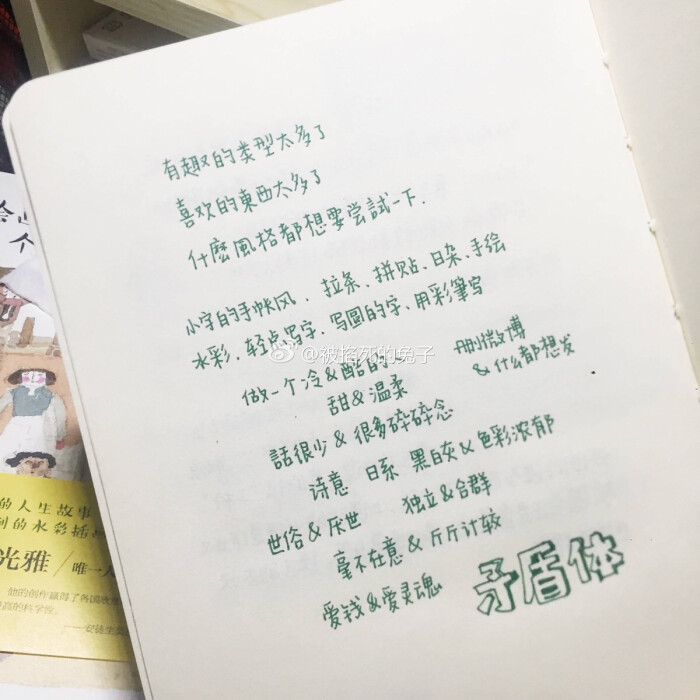 有趣的类型太多了
喜欢的東西太多了
什麼風格都想要尝試一下.
小字的手帐风、拉条、拼贴、日杂、手绘
水彩、轻点写字、写圆的字、用彩筆写
@被掐死的兔子
做一个冷&酷的
甜&温柔
删微博
&什么都想发
話很少&很多碎碎念
诗意 日系 黑白灰&色彩浓郁
世俗&厌世 独立&合群
毫不在意&斤斤计较
爱钱&爱灵魂
矛盾体
的人生故事
到的水彩插画
光雅/唯一
他的创作赢得了各国
最高的科学院。
——安徒生